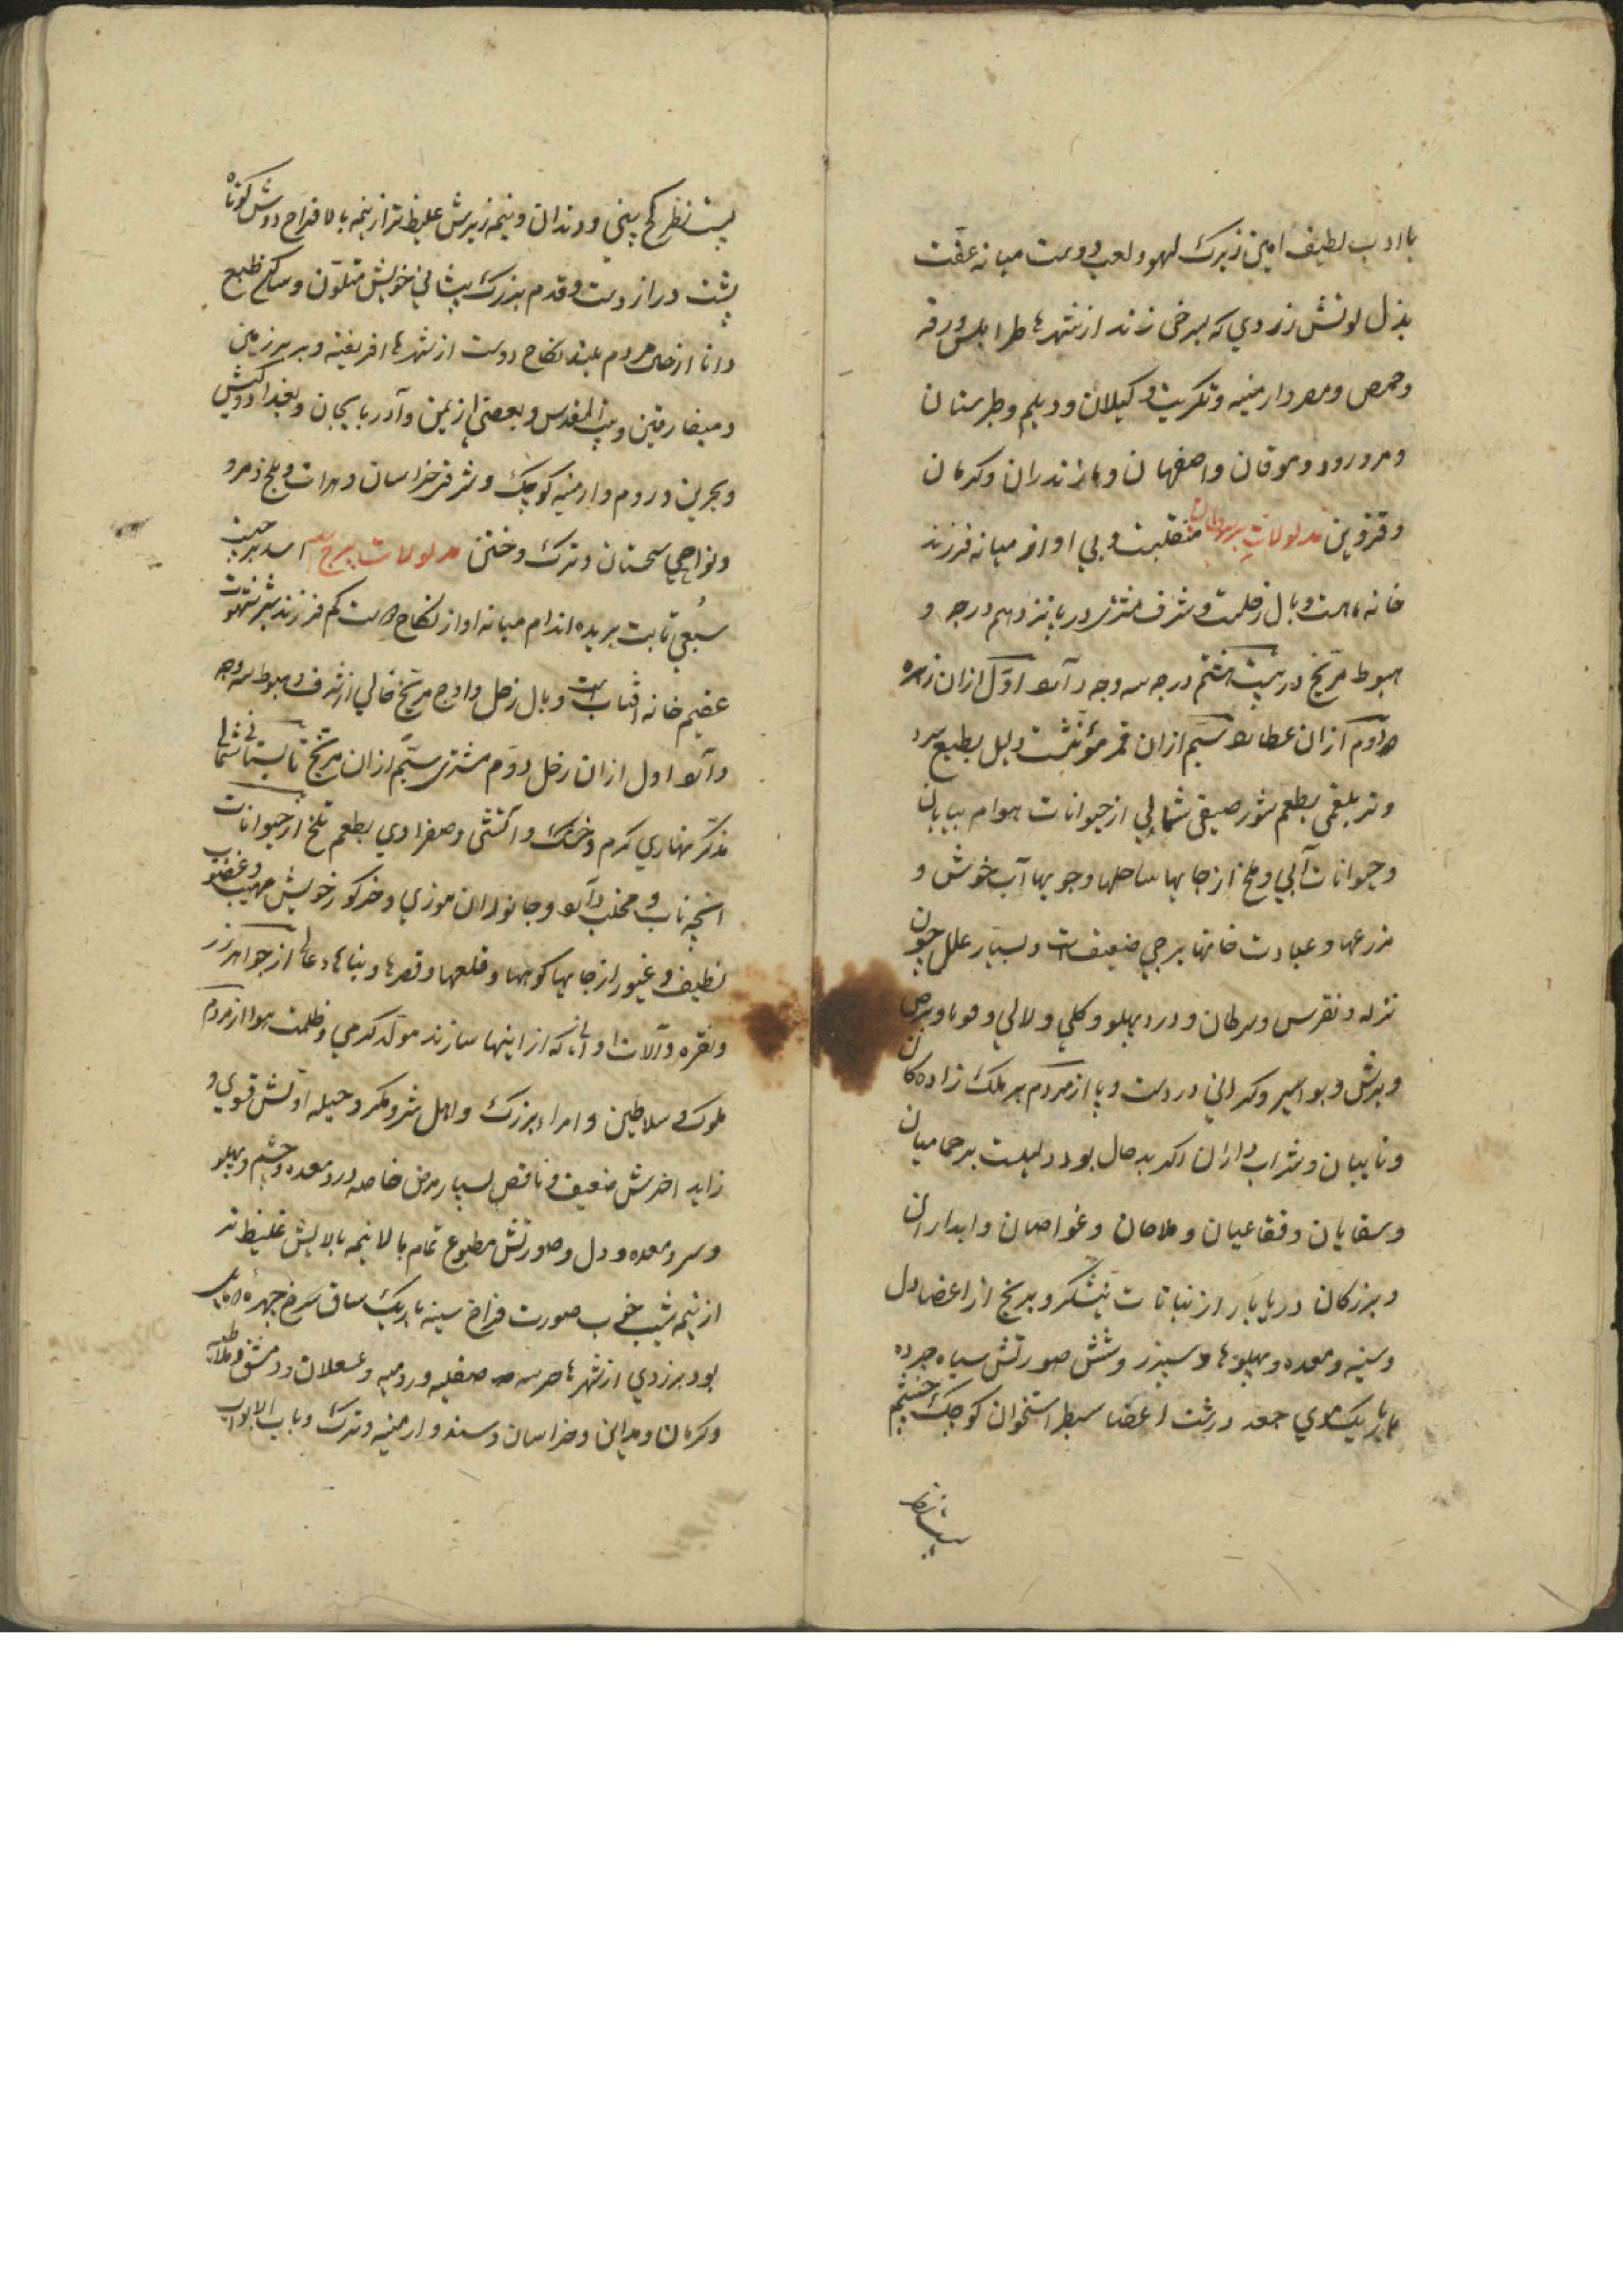 با ادب لطیف امین زیرک لهو و لعب دوست میانه عفّت
بذل لونش زردی که بسرخی زند از شهرها طرابلس ورقه
وحمص ومصر وارمنیه وتکریت و کیلان ودیلم وطبرستان
ومرورود وموقان واصفهان ومازندران وکرمان
وقزوین مدلولات برج سرطان منقلبست وبی اواز میانه فرزند
خانه ماهست وبال زحلست وشرف مشتری در پانزدهم درجه و
هبوط مرّیخ در بیست هشتم درجه سه وجه دارد اوّل ازان زهره
دوّم ازان عطارد سیّم ازان قمر مؤنّثست دلیل بطبع سرد
وتر بلغمی بطعم شور صیفی شمالی از حیوانات هوام بیابان
وحیوانات آبی وملخ از جایها ساحلها وجویها آب خوش و
مزرعها وعبادت خانها برجی ضعیفست و بسیار علل چون
نزله ونقرس وسرطان ودرد پهلو وکلی ولالی وقوبا وبرص
وبرش وبواسیر وکرانی در دست وپا از مردم بر ملک زادهکان
ونایبان وشراب داران اکر بدحال بود دلیلست برحمامیان
وسقایان وفقاعیان وملاحان وغواصان وابداران
وبزرکان دریابار از نباتات نیشکر وبرنج از اعضا دل
وسینه ومعده وپهلوها وسپرز وشش صورتش سیاه جرده
باریک موی جعد درشت اعضا سطبر استخوان کوچک چشم
پست نظر
پست نظر کج بینی ودندان ونیمه زیرش غلیظ تر از نیمه بالا فراخ دوش کوتاه
پشت دراز دست وقدم بزرک پیشانی خویش متلوّن وساکن طبع
دانا از حال مردم بلند نکاح دوست از شهرها افریقیه وبربر زمین
ومیفارقین وبیت المقدس وبعضی از یمن وآذربایجان وبغداد وکیش
وبحرین وروم وارمنیه کوچک وشرقی خراسان وهرات وبلخ ومرو
ونواحی سجستان وترک وختن مدلولات برج اسد برجیست
سبعی ثابت بریده اندام میانه اواز نکاح دوست کم فرزند بیشر شهوت
عقیم خانه افتابست وبال زحل واوج مریخ خالی از شرف وهبوط سه وجه
دارد اول ازان زحل دوّم مشتری سیّم ازان مریخ تابستانی شمالی
مذکّر نهاری کرم وخشک واتشی وصفراوی بطعم تلخ از حیوانات
انچه ناب ومخلب دارد وجانوران موزی وخرکور خویش مهیب وغضوب
نظیف وغیور از جایها کوهها وقلعها وقصرها وبناهاء عالی از جواهر زر
ونقره وآلات واوانی که از اینها سازند موکد کرمی وظلمت هوا از مردم
ملوک وسلاطین وامراء بزرک واهل شر ومکر وحیله اوّلش قوی و
زاید اخرش ضعیف وناقص بسیار مرض خاصه درد معده وچشم وپهلو
وسر ومعده ودل وصورتش مطبوع تمام بالا نیمه بالایش غلیظ تر
از نیمه شیب خوب صورت فراخ سینه باریک ساق سرخ چهره مایل
بود بزردی از شهرها صقلیه ورومیه وعسقلان ودمشق
وکرمان ومداین وخراسان وسغد وارمنیه وترک وباب الابواب